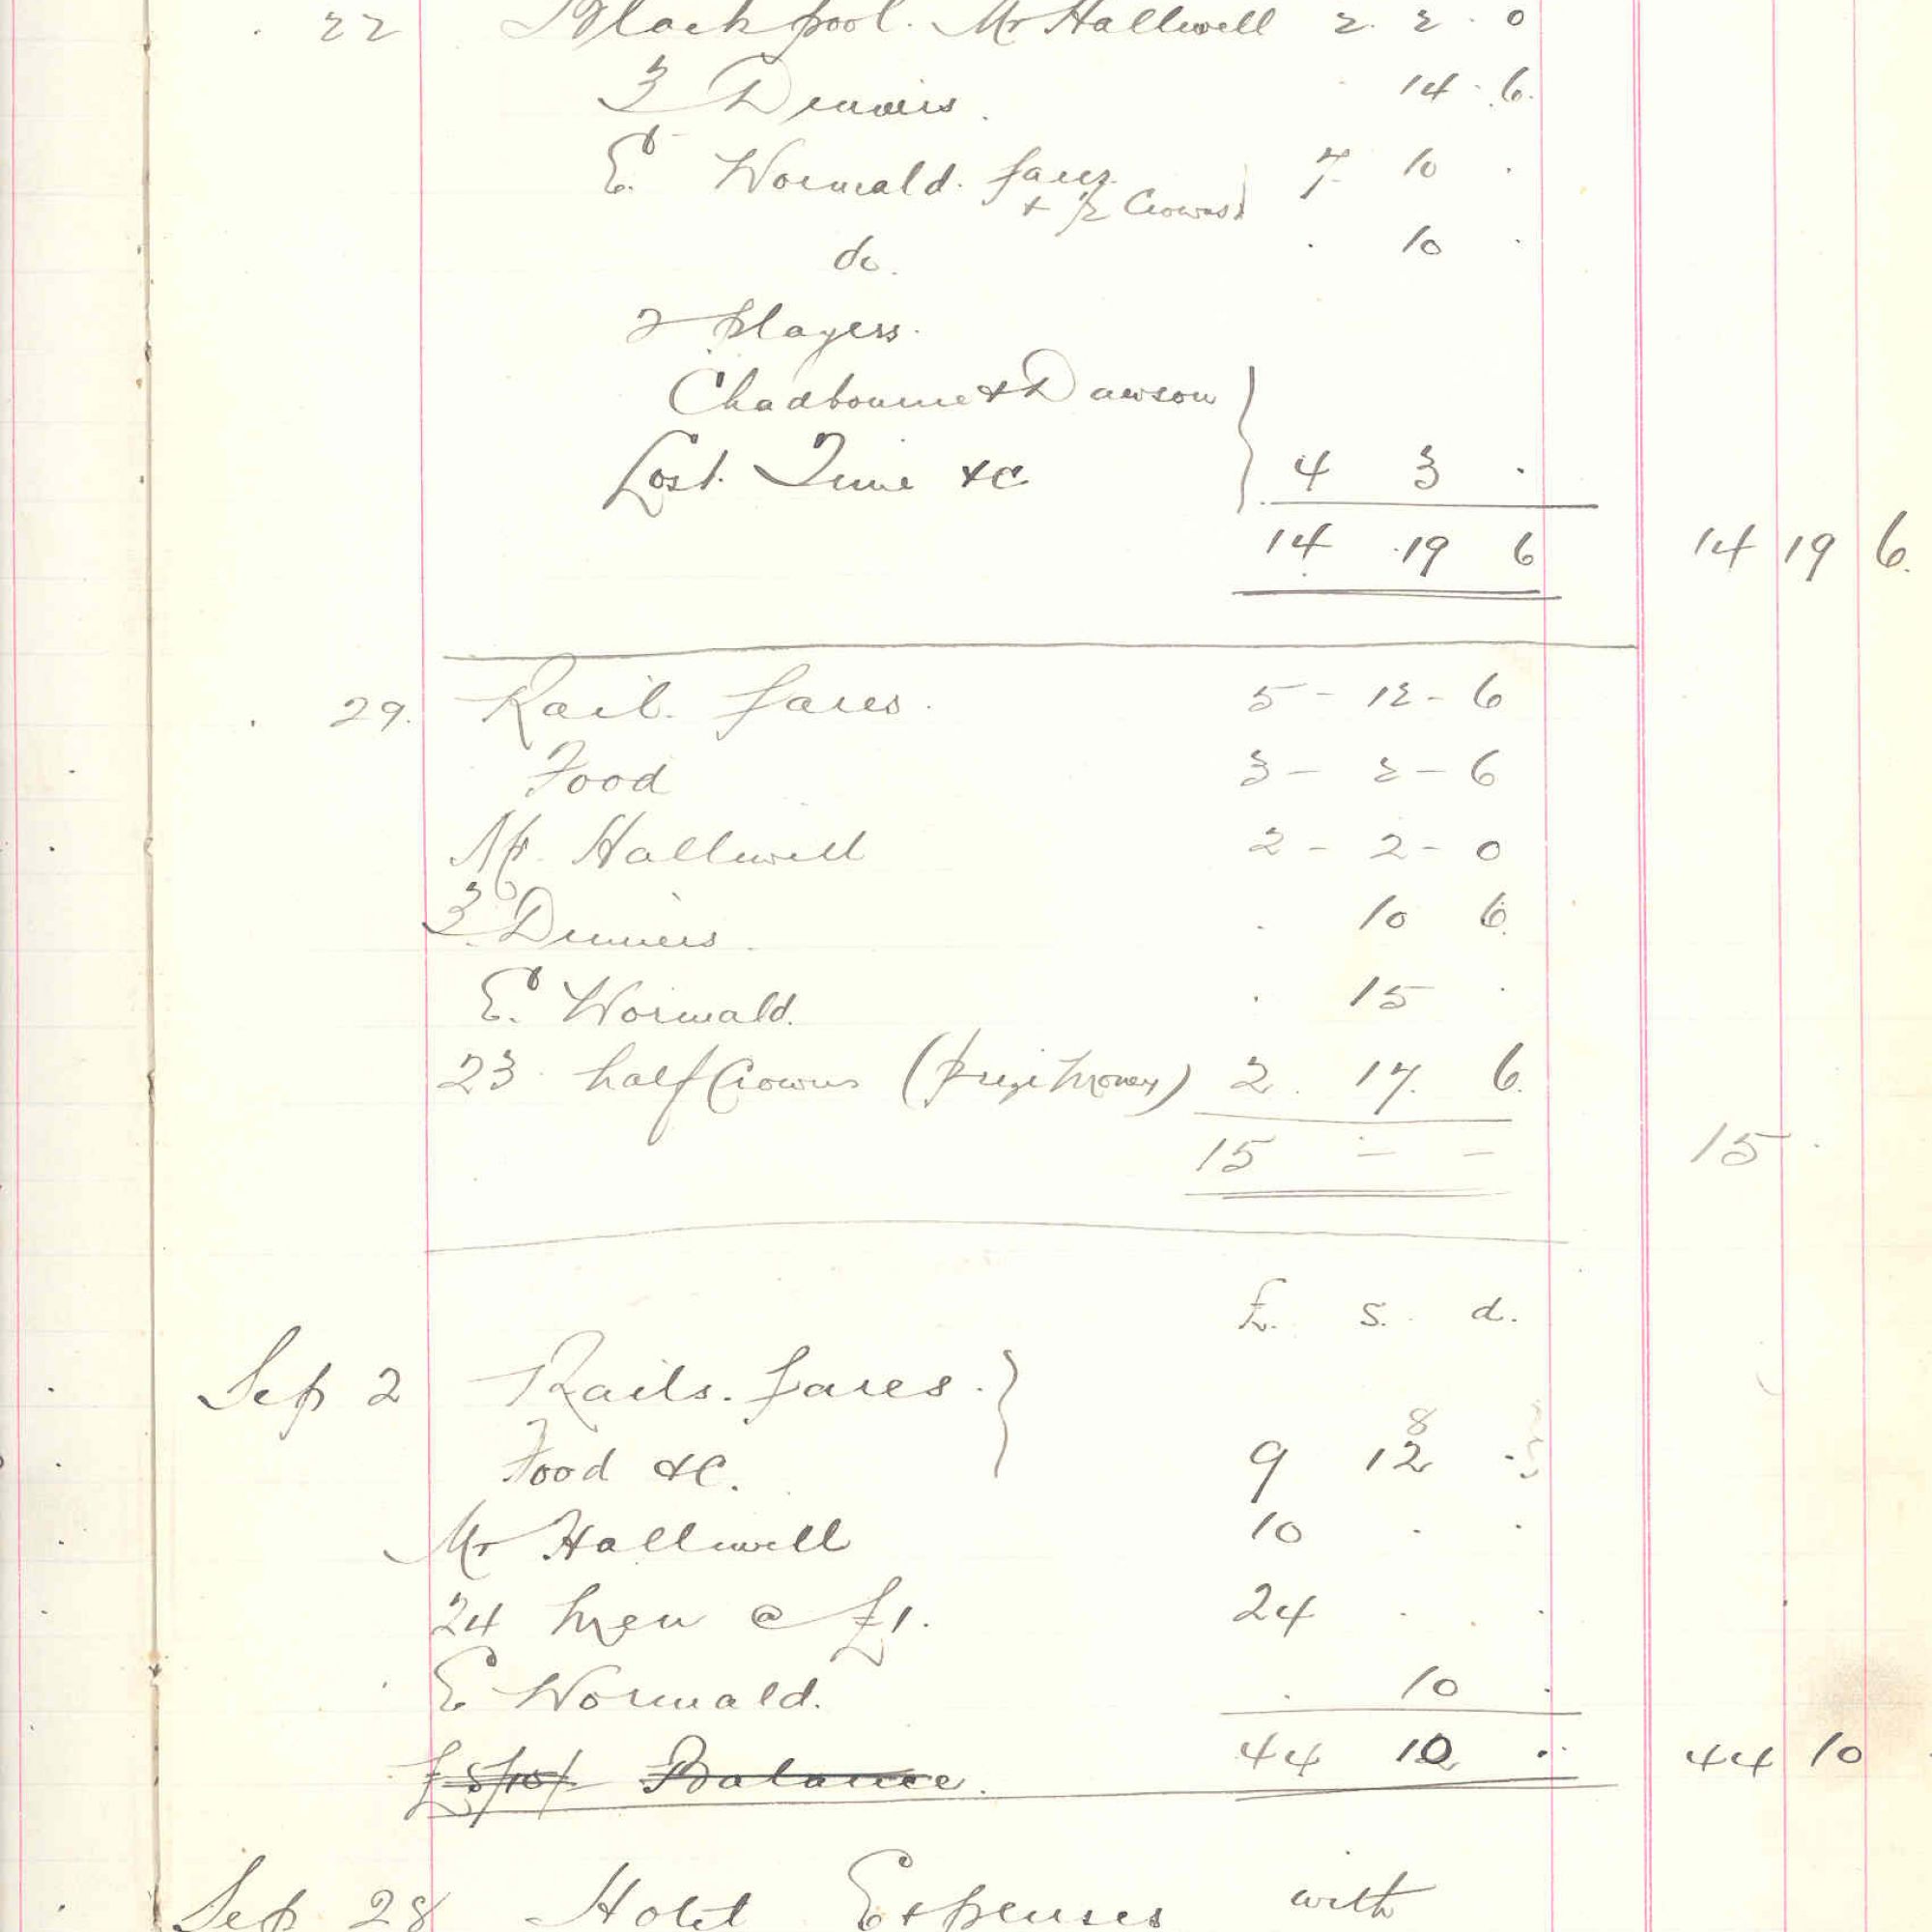 22 Blackpool. Mr Halliwell 2. 2. 0
3 Dinners. 14. 6.
E. Wormald. fares. 7 10 .
+ ½ Crowns
do. . 10 .
2 players.
Chadbourne & Dawson
Lost. Time &c 4 3 .
14 19 6 14 19 6.
29. Rail. fares. 5 - 12 - 6
Food 3 - 2 - 6
Mr. Halliwell 2 - 2 - 0
3 Dinners. . 10 6.
E. Wormald. . 15 .
23 half Crowns (prize money) 2. 17. 6.
15 - - 15 .
£. s. d.
Sep 2 Rails. fares.
Food &c. 9 12 8 .
Mr Halliwell 10 . .
24 men @ £1. 24 . .
E Wormald. . 10 .
44 10 .. 44 10
Balance.
Sep 28 Hotel Expenses with